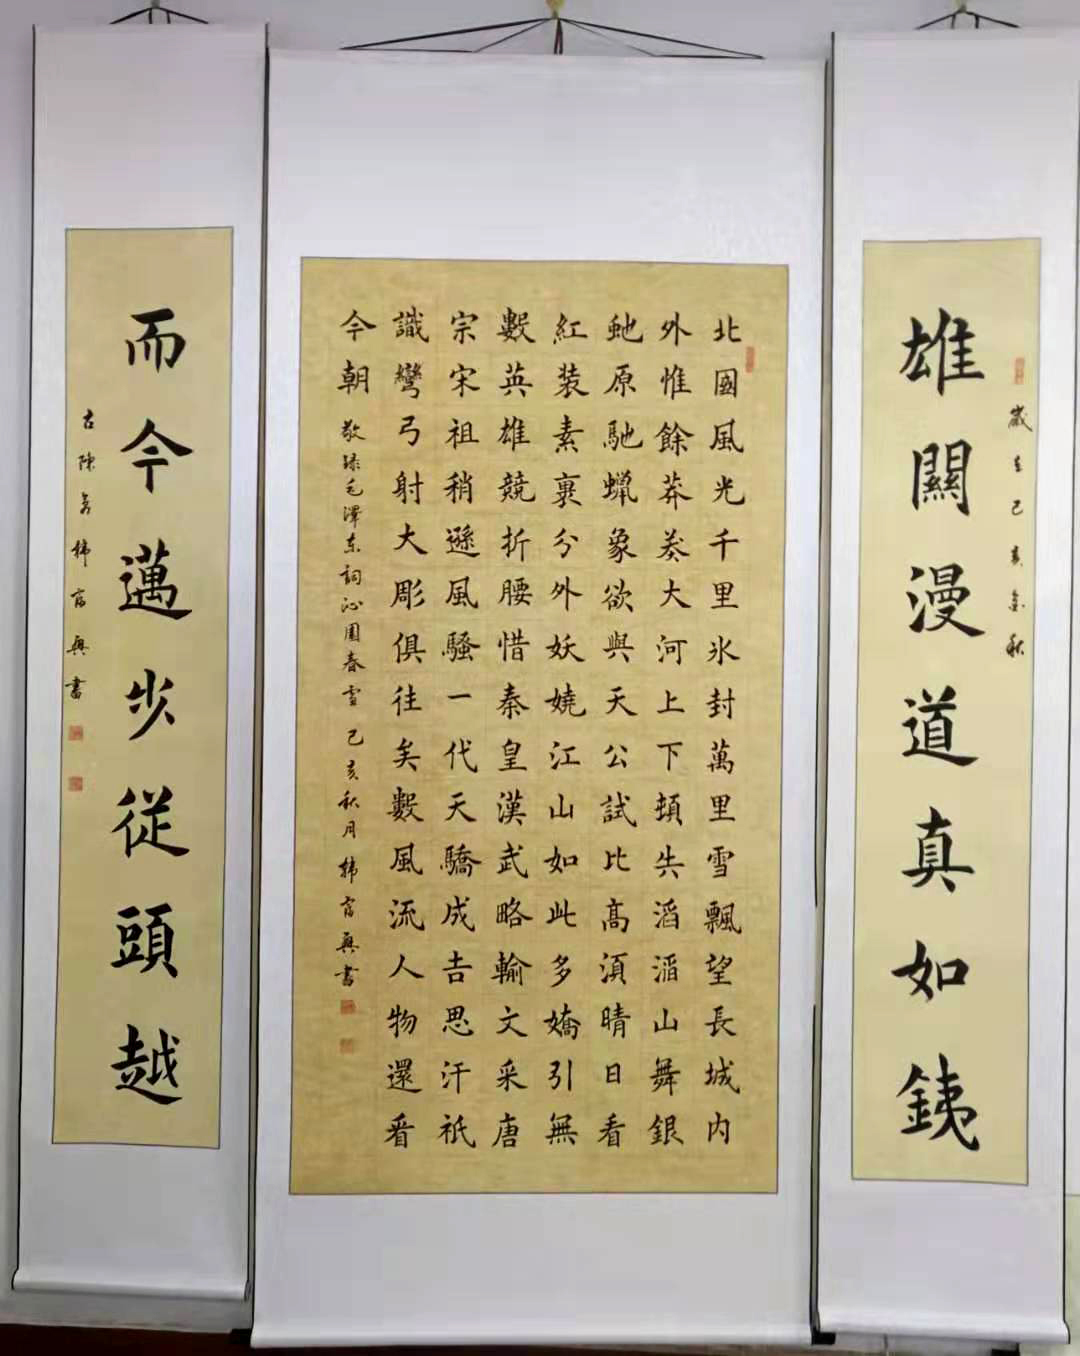 歲在己亥金秋
雄關漫道真如銕
北國風光千里氷封萬里雪飄望長城内
外惟餘莽莽大河上下頓失滔滔山舞銀
虵原馳蝋象欲與天公試比高須晴日看
紅装素裹分外妖嬈江山如此多嬌引無
數英雄競折腰惜秦皇漢武略輸文采唐
宗宋祖稍遜風騷一代天驕成吉思汗祇
識彎弓射大彫俱往矣數風流人物還看
今朝 敬録毛澤东詞沁園春雪 己亥秋月韩富興書
而今邁步從頭越
古陳韩富興書